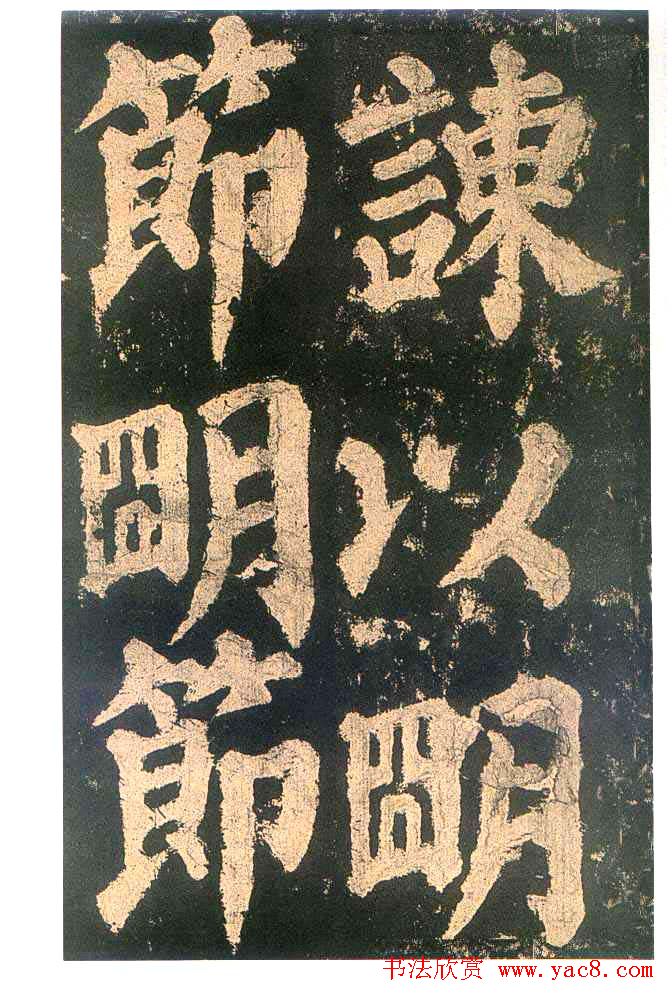 諫以朙
節朙節
书法欣赏 www.yac8.com